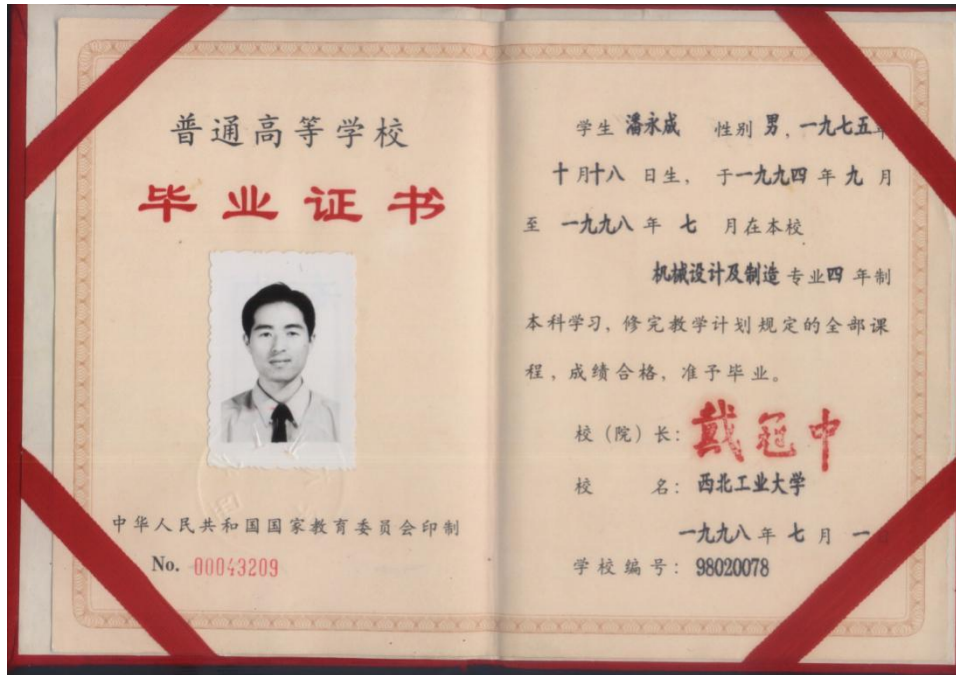 普通高等学校
毕业证书
中华人民共和国国家教育委员会印制
No. 00043209
学生 潘永成 性别 男，一九七五年
十月十八日生，于一九九四年九月
至 一九九八年 七 月在本校
机械设计及制造专业四年制
本科学习，修完教学计划规定的全部课
程，成绩合格，准予毕业。
校（院）长：戴冠中
校 名：西北工业大学
一九九八年七月一
学校编号：98020078